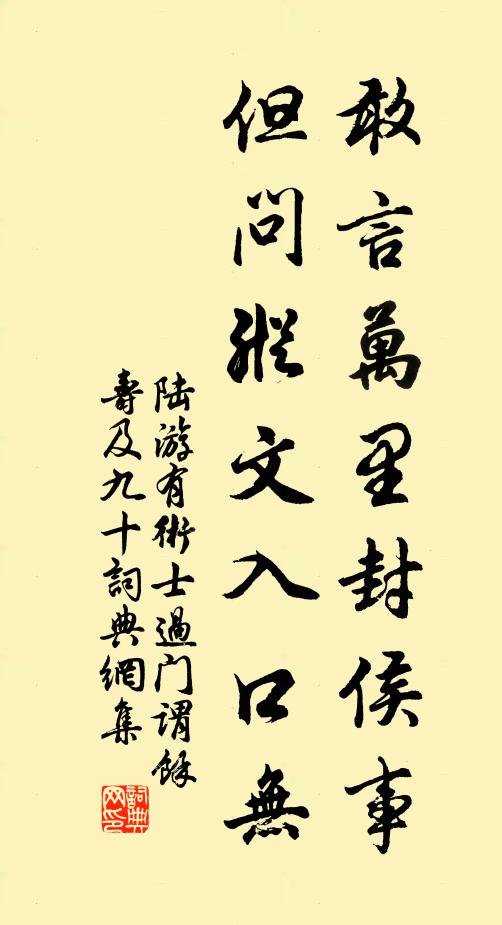 敢言萬里封侯事
但問縱文入口無
陸游有術士過门謂餘
壽及九十詞典網集
詞典网印